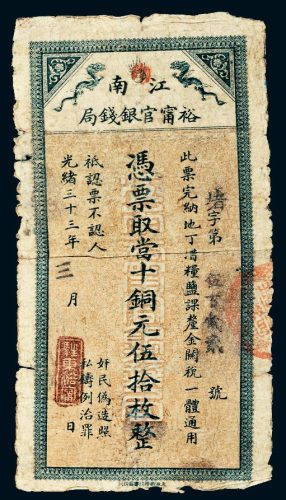 江南
裕甯官銀錢局
字第號
此票完納地丁漕糧鹽課釐金關稅一體通用
憑票取當十銅元伍拾枚整
祗認票不認人
光緒三十三年三月日
奸民偽造照
私鑄例治罪